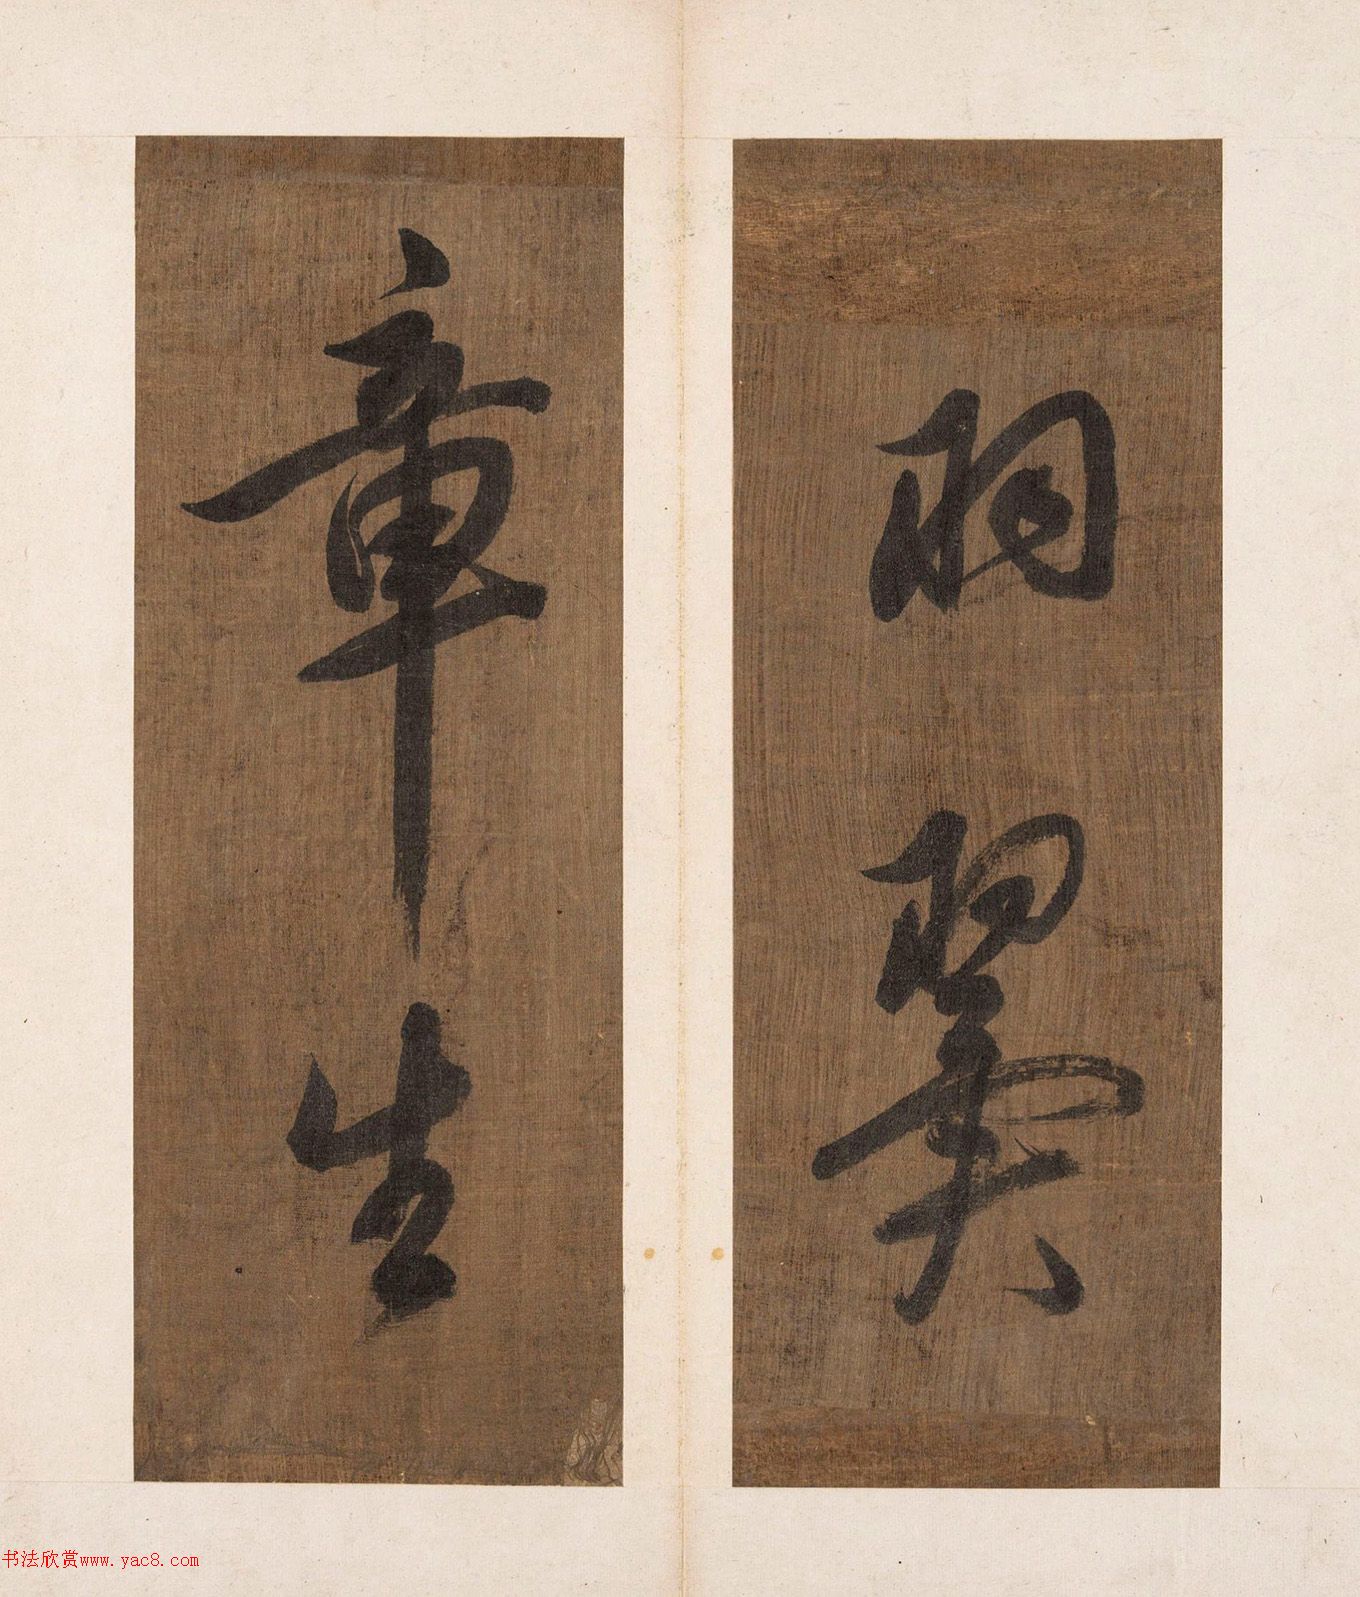 羽翼
章生
书法欣赏www.yac8.com